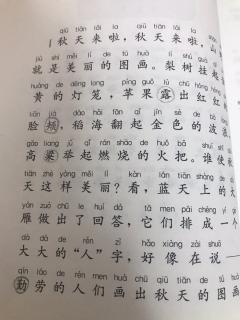 qiū tiān lái la qiū tiān lái la
秋天来啦，秋天来啦，山
jiù shì měi lì de tú huà lí shù guà
就是美丽的图画。梨树挂起
huáng de dēng lóng píng guǒ lù chū hóng hóng
黄的灯笼，苹果露出红红
liǎn jiá dào hǎi fān qǐ jīn sè de bō
脸颊，稻海翻起金色的波
gāo liang jǔ qǐ rán shāo de huǒ bǎ shuí shǐ
高粱举起燃烧的火把。谁使秋
tiān zhè yàng měi lì kàn lán tiān shàng de dà
天这样美丽？看，蓝天上的大
yàn zuò chū le huí dá tā men pái chéng yí
雁做出了回答，它们排成一个
dà dà de rén zì hǎo xiàng zài shuō
大大的“人”字，好像在说——
qín láo de rén men huà chū qiū tiān de tú
勤劳的人们画出秋天的图画